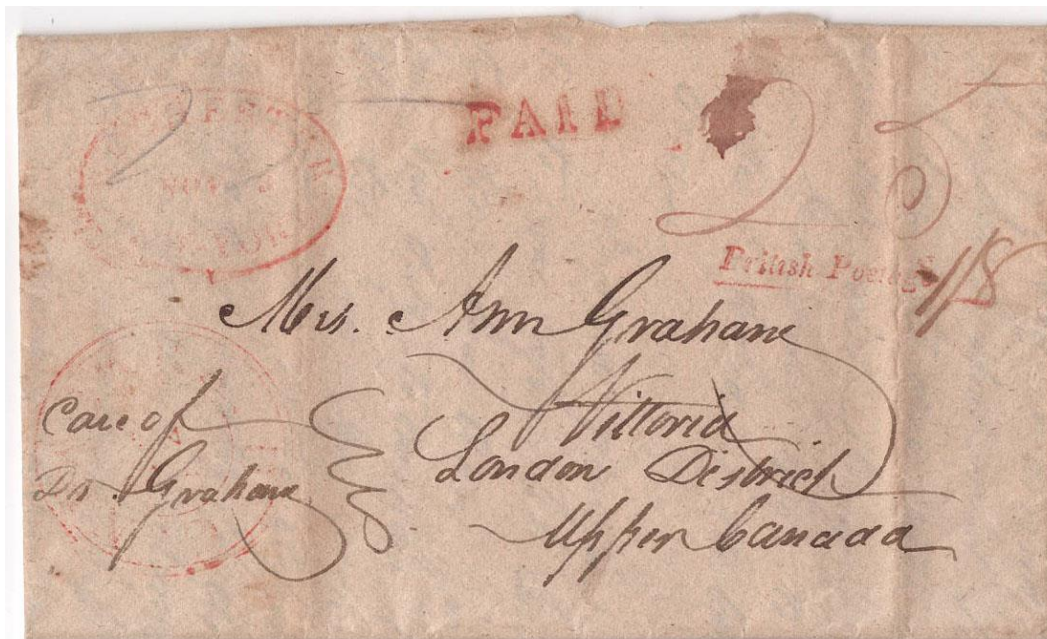 PAID
25
British Postage
1/8
Mrs. Ann Grahame
Vittoria
London District
Upper Canada
Care of
Dr. Grahame